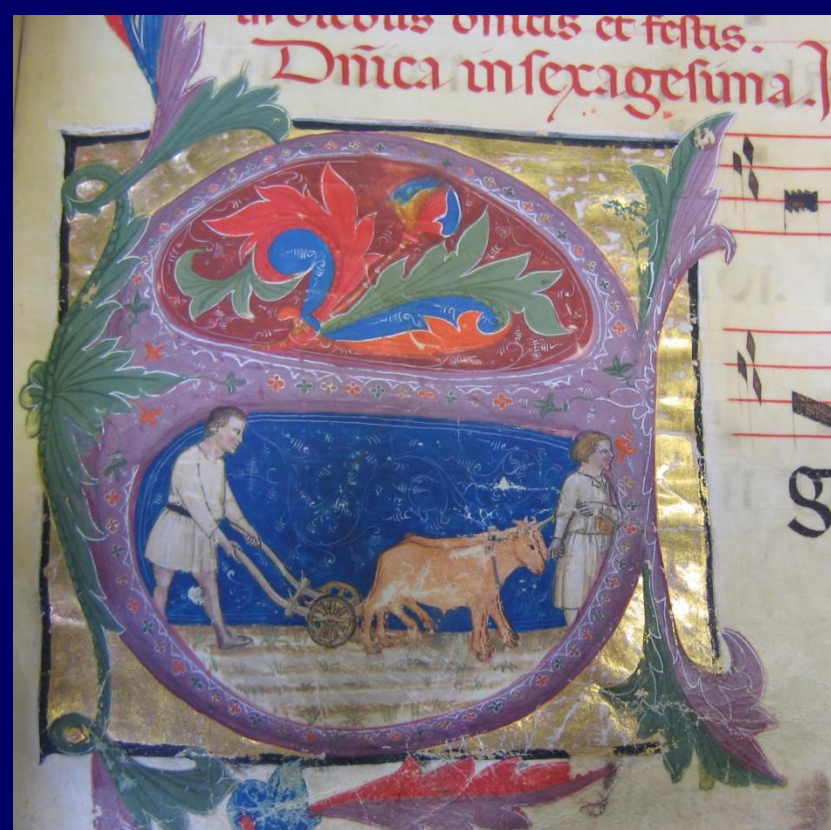 in diebus dnicis et festis.
Dñica in sexagesima.
E
g